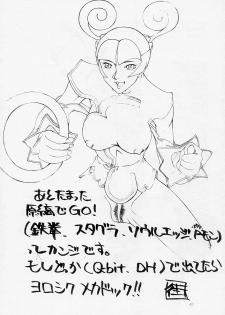 あとたまった
原稿でGO!
(鉄拳、スタグラ、ソウルエッジ、
ってカンジです。
もしどっか(Q-bit、DH)で出てたい
ヨロシク メカドック!!